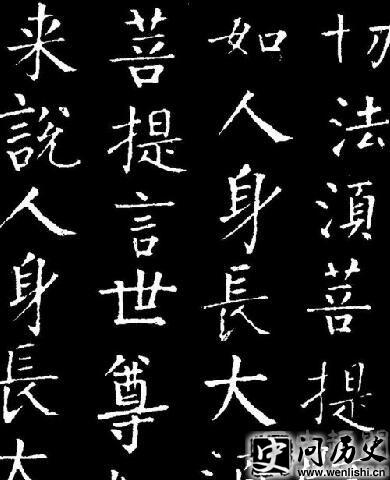 切法湏菩提
如人身長大
菩提言世尊
来說人身長大
史 问历史
www.wenlishi.cn